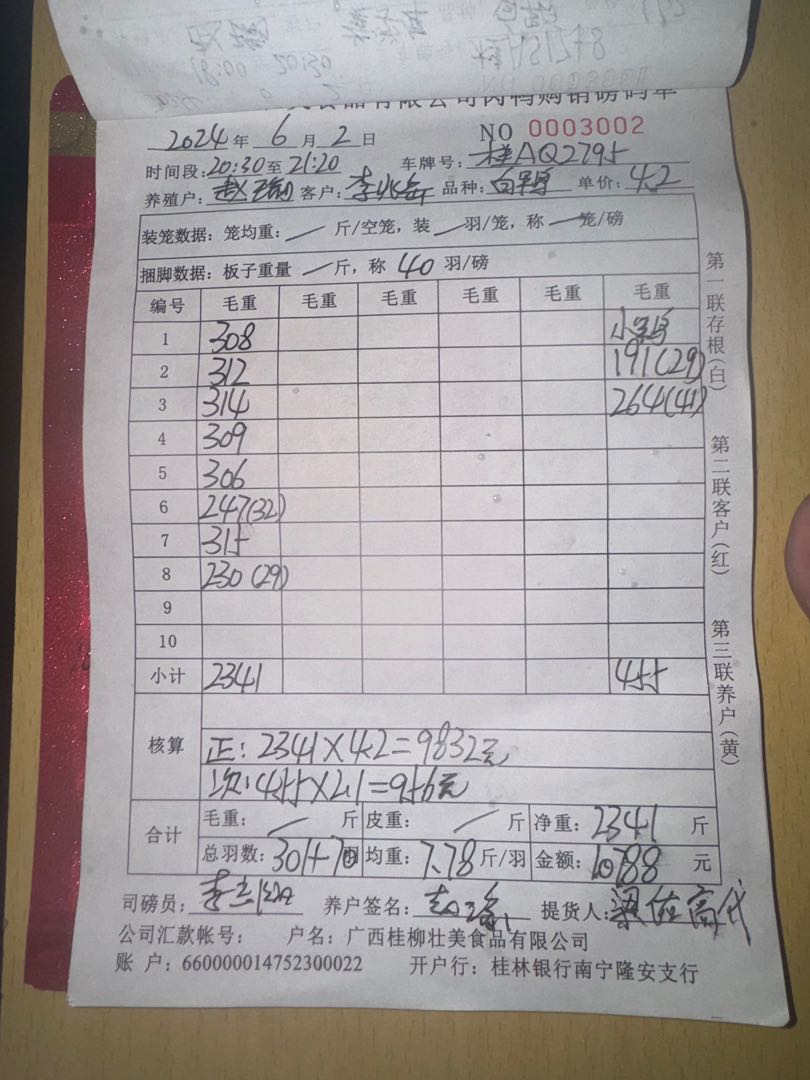 食品有限公司肉鸭购销磅码单
2024年 6月 2日 NO 0003002
时间段:20:30至21:20 车牌号:桂AQ2795
养殖户: 客户: 品种:白 单价:4.2
装笼数据:笼均重:/斤/空笼,装/羽/笼,称一笼/磅
捆脚数据:板子重量/斤,称40羽/磅
编号 毛重 毛重 毛重 毛重 毛重 毛重
1 308 小
2 312 191(29)
3 314 264(41)
4 309
5 306
6 247(32)
7 315
8 230(29)
9
10
小计 2341 455
核算
正:2341×4.2=9832元
次:455×2.1=956元
合计 毛重:/斤 皮重:/斤 净重:2341斤
总羽数:301+70 均重:7.78斤/羽 金额:10788元
司磅员: 养户签名: 提货人:
公司汇款帐号: 户名:广西桂柳壮美食品有限公司
账 户:660000014752300022 开户行:桂林银行南宁隆安支行
第一联存根(白) 第二联客户(红) 第三联养户(黄)